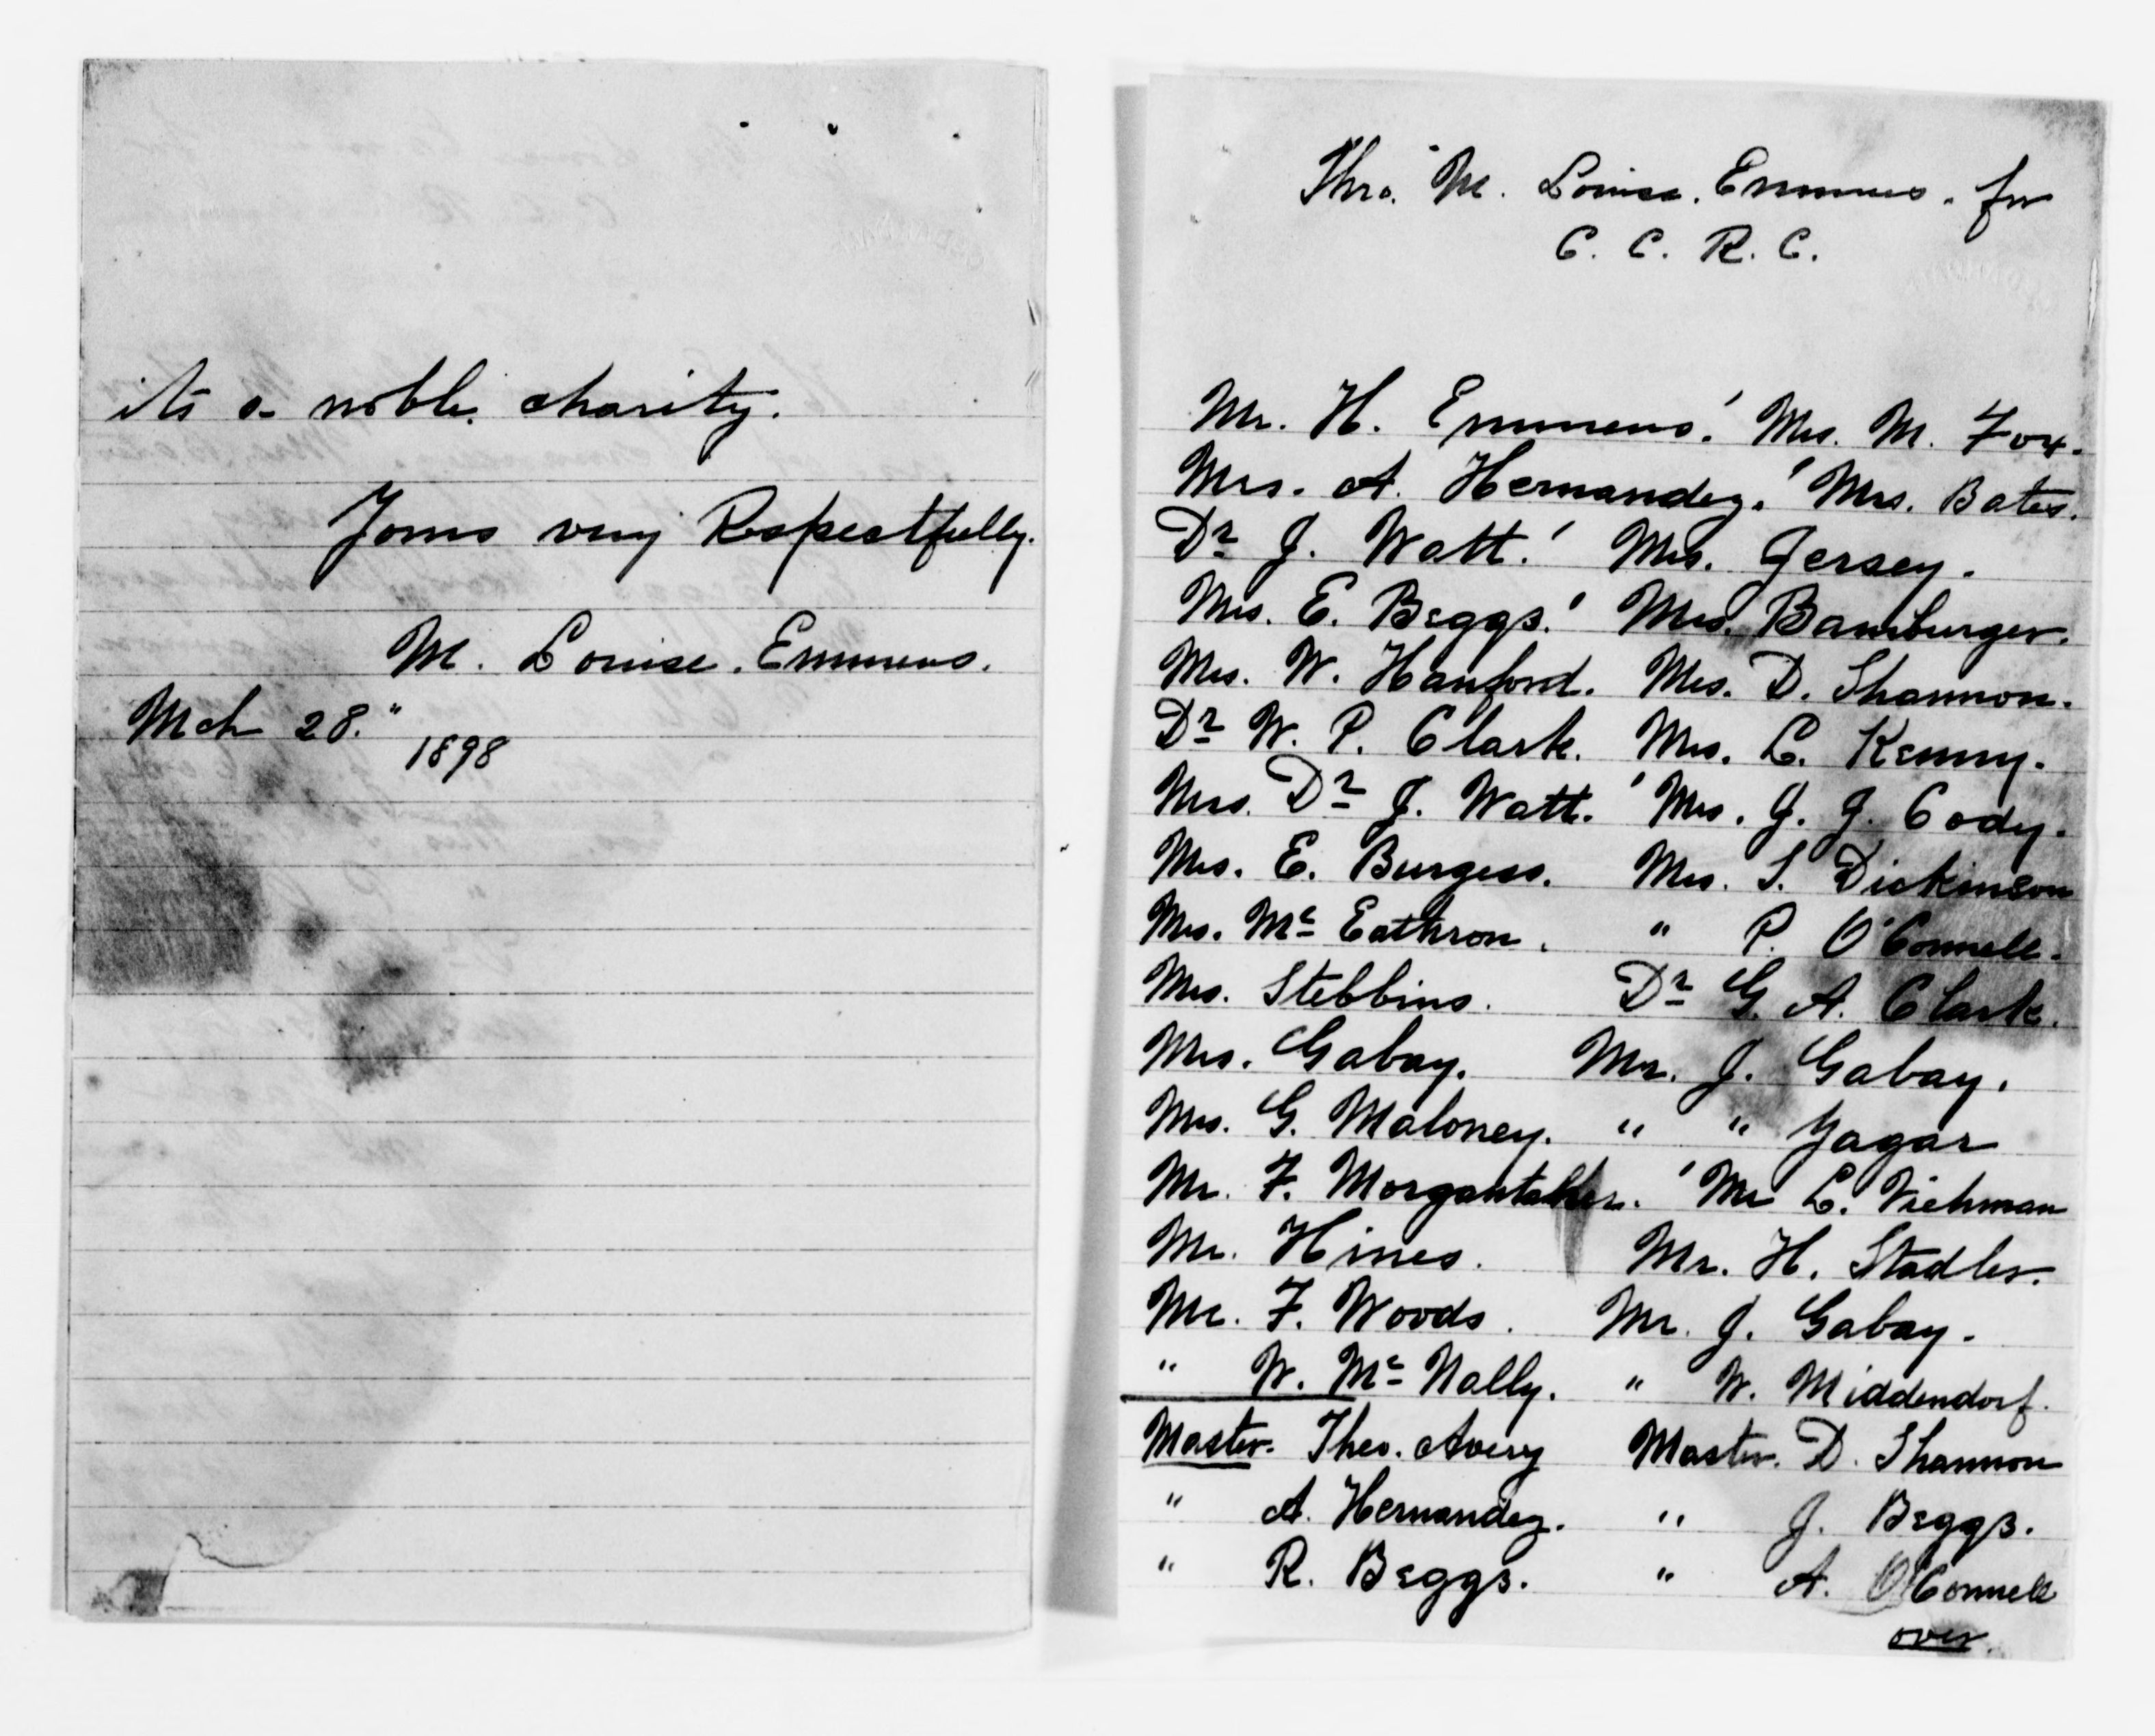 its a noble charity.
Yours very Respectfully.
M. Louise. Emmens.
Mch 28." 1898
Thro. M. Louise. Emmens. for
C. C. R. C.
Mr. H. Emmens.' Mrs. M. Fox.
Mrs. A. Hernandez.' Mrs. Bates.
Dr J. Watt.' Mrs. Jersey.
Mrs. E. Beggs.' Mrs. Bamburger.
Mrs. W. Hanford. Mrs. D. Shannon.
Dr W. P. Clark. Mrs. L. Kenny.
Mrs. Dr J. Watt. ' Mrs. J. J. Cody.
Mrs. E. Burgess. Mrs. S. Dickinson
Mrs. Mc Eathron. " P. O'Connell.
Mrs. Stebbins. Dr G. A. Clark.
Mrs. Gabay. Mr. J. Gabay.
Mrs. G. Maloney. " " Yagar
Mr. F. Morgantahler. ' Mr L. Viehman
Mr. Hines. Mr. H. Stadler.
Mr. F. Woods. Mr. J. Gabay.
" W. Mc Nally. " W. Middendorf.
Master. Theo. Avery Master. D. Shannon
" A. Hernandez. " J. Beggs.
" R. Beggs. " A. O'Connell
over.